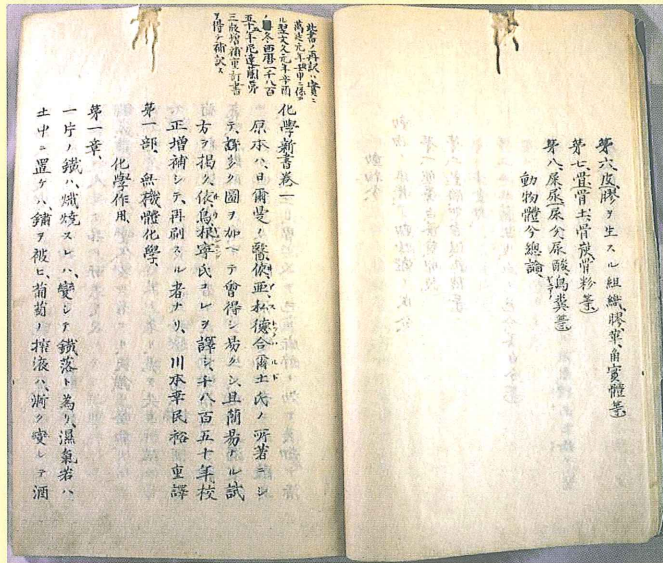 第六、皮膠ヲ生スル組織、膠、革、角實體䓁
第七、骨、骨土、骨炭、骨粉䓁
第八、尿、尿分、尿酸、鳥糞䓁
動物體今總論
此書ノ再訳ハ實ニ
萬延元年
ル翌文久元年辛酉
冬西暦一千八百
五十
三版增補更訂書
ヲ得テ補訳ス
化學新書卷一
原本ハ日爾曼ノ醫、依、亜、私德合爾土氏ノ所著ニシ
テ、許多ク圖ヲ加ヘテ會得シ易クシ、且簡易ナル試
方ヲ揭ク、依、烏、根寧氏コレヲ譯シ、千八百五十年校
正增補シテ、再刷スル者ナリ、川本幸民裕重譯
第一部、無機體化學、
化學作用、
第一章、
一片ノ鐵ハ、熾燒スレハ、變シテ鐵落ト為リ、濕氣若ハ
土中ニ置ケハ、鏽ヲ被ヒ、葡萄ノ搾液ハ、漸ク變シテ酒